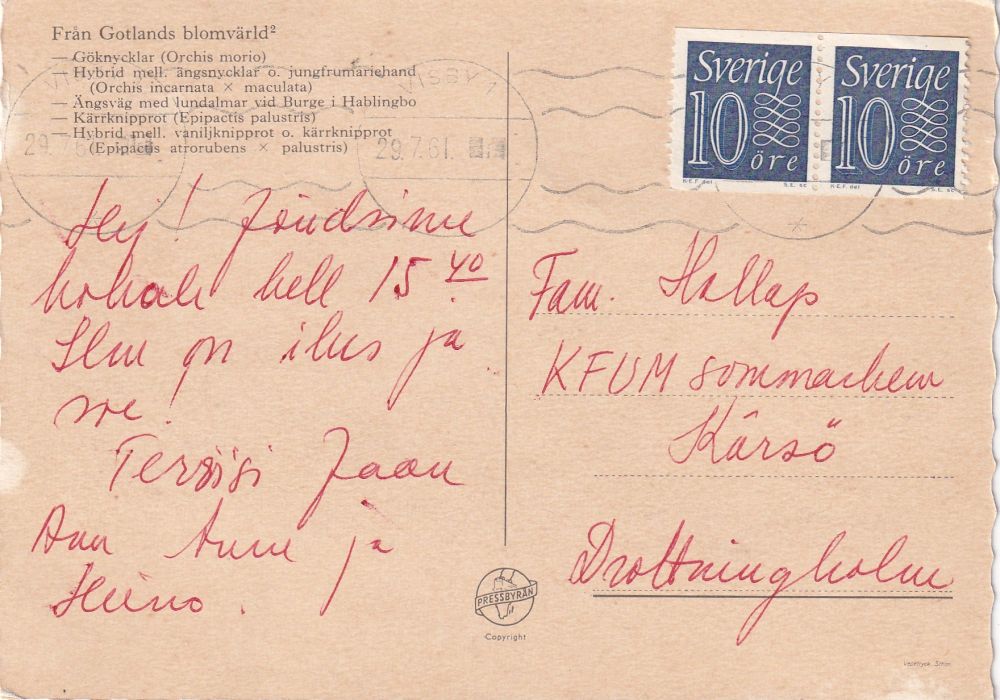 Från Gotlands blomvärld²
— Göknycklar (Orchis morio)
— Hybrid mell. ängsnycklar o. jungfrumariehand
(Orchis incarnata × maculata)
— Ängsväg med lundalmar vid Burge i Hablingbo
— Kärrknipprot (Epipactis palustris)
— Hybrid mell. vaniljknipprot o. kärrknipprot
(Epipactis atrorubens × palustris)
VISBY 1
29.7.61.
Sverige
10
öre
K.E.F. del
S.E. sc
Sverige
10
öre
K.E.F. del
S.E. sc
Hej! Jõudsime
kohale kell 15 40
Ilm on ilus ja
Tervisi Jaan
Ann Anne ja
Heino.
Fam. Hallap
KFUM sommarhem
Kärsö
Drottningholm
PRESSBYRÅN
Copyright